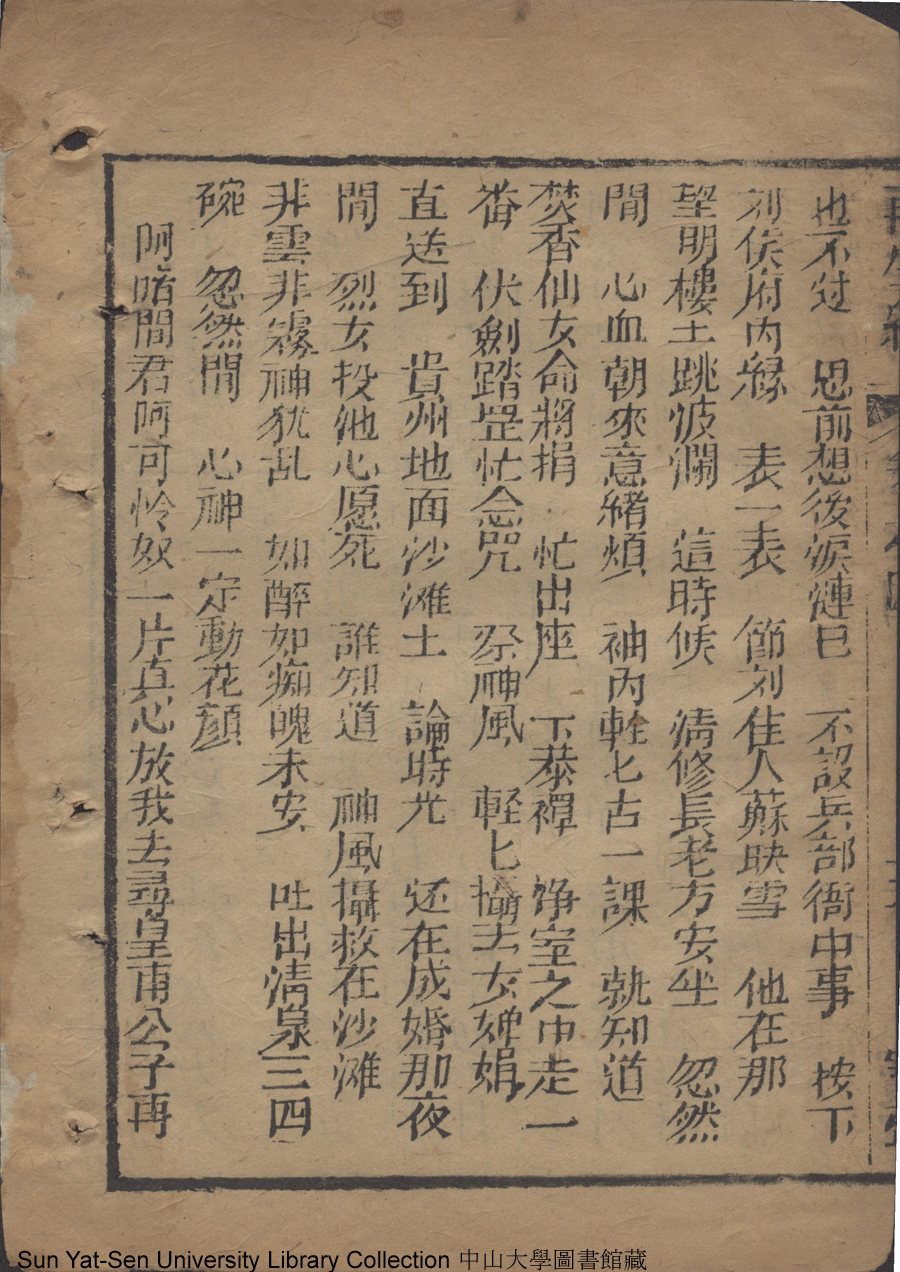 也不过　思前想後淚漣巳　不說兵部衙中事　按下
刘侯府内緣　表一表　節刘佳人蘇映雪　他在那
望明樓上跳波瀾　這時候　清修長老方安坐　忽然
間　心血朝來意緒煩　袖内輕匕占一課　就知道
焚香仙女命將捐　忙出座　下蒲禪　净室之中走一
畨　伏劍踏罡忙念咒　祭神風　輕匕攝去女婵娟
直送到　貴州地面沙滩土　論時光　还在成婚那夜
間　烈女投池心愿死　誰知道　神風攝救在沙滩
非雲非霧神犹乱　如醉如痴魄未安　吐出清泉三四
碗　忽然間　心神一定動花顔
阿唷間君阿可怜奴一片真心放我去尋皇甫公子再
Sun Yat-Sen University Library Collection 中山大學圖書館藏